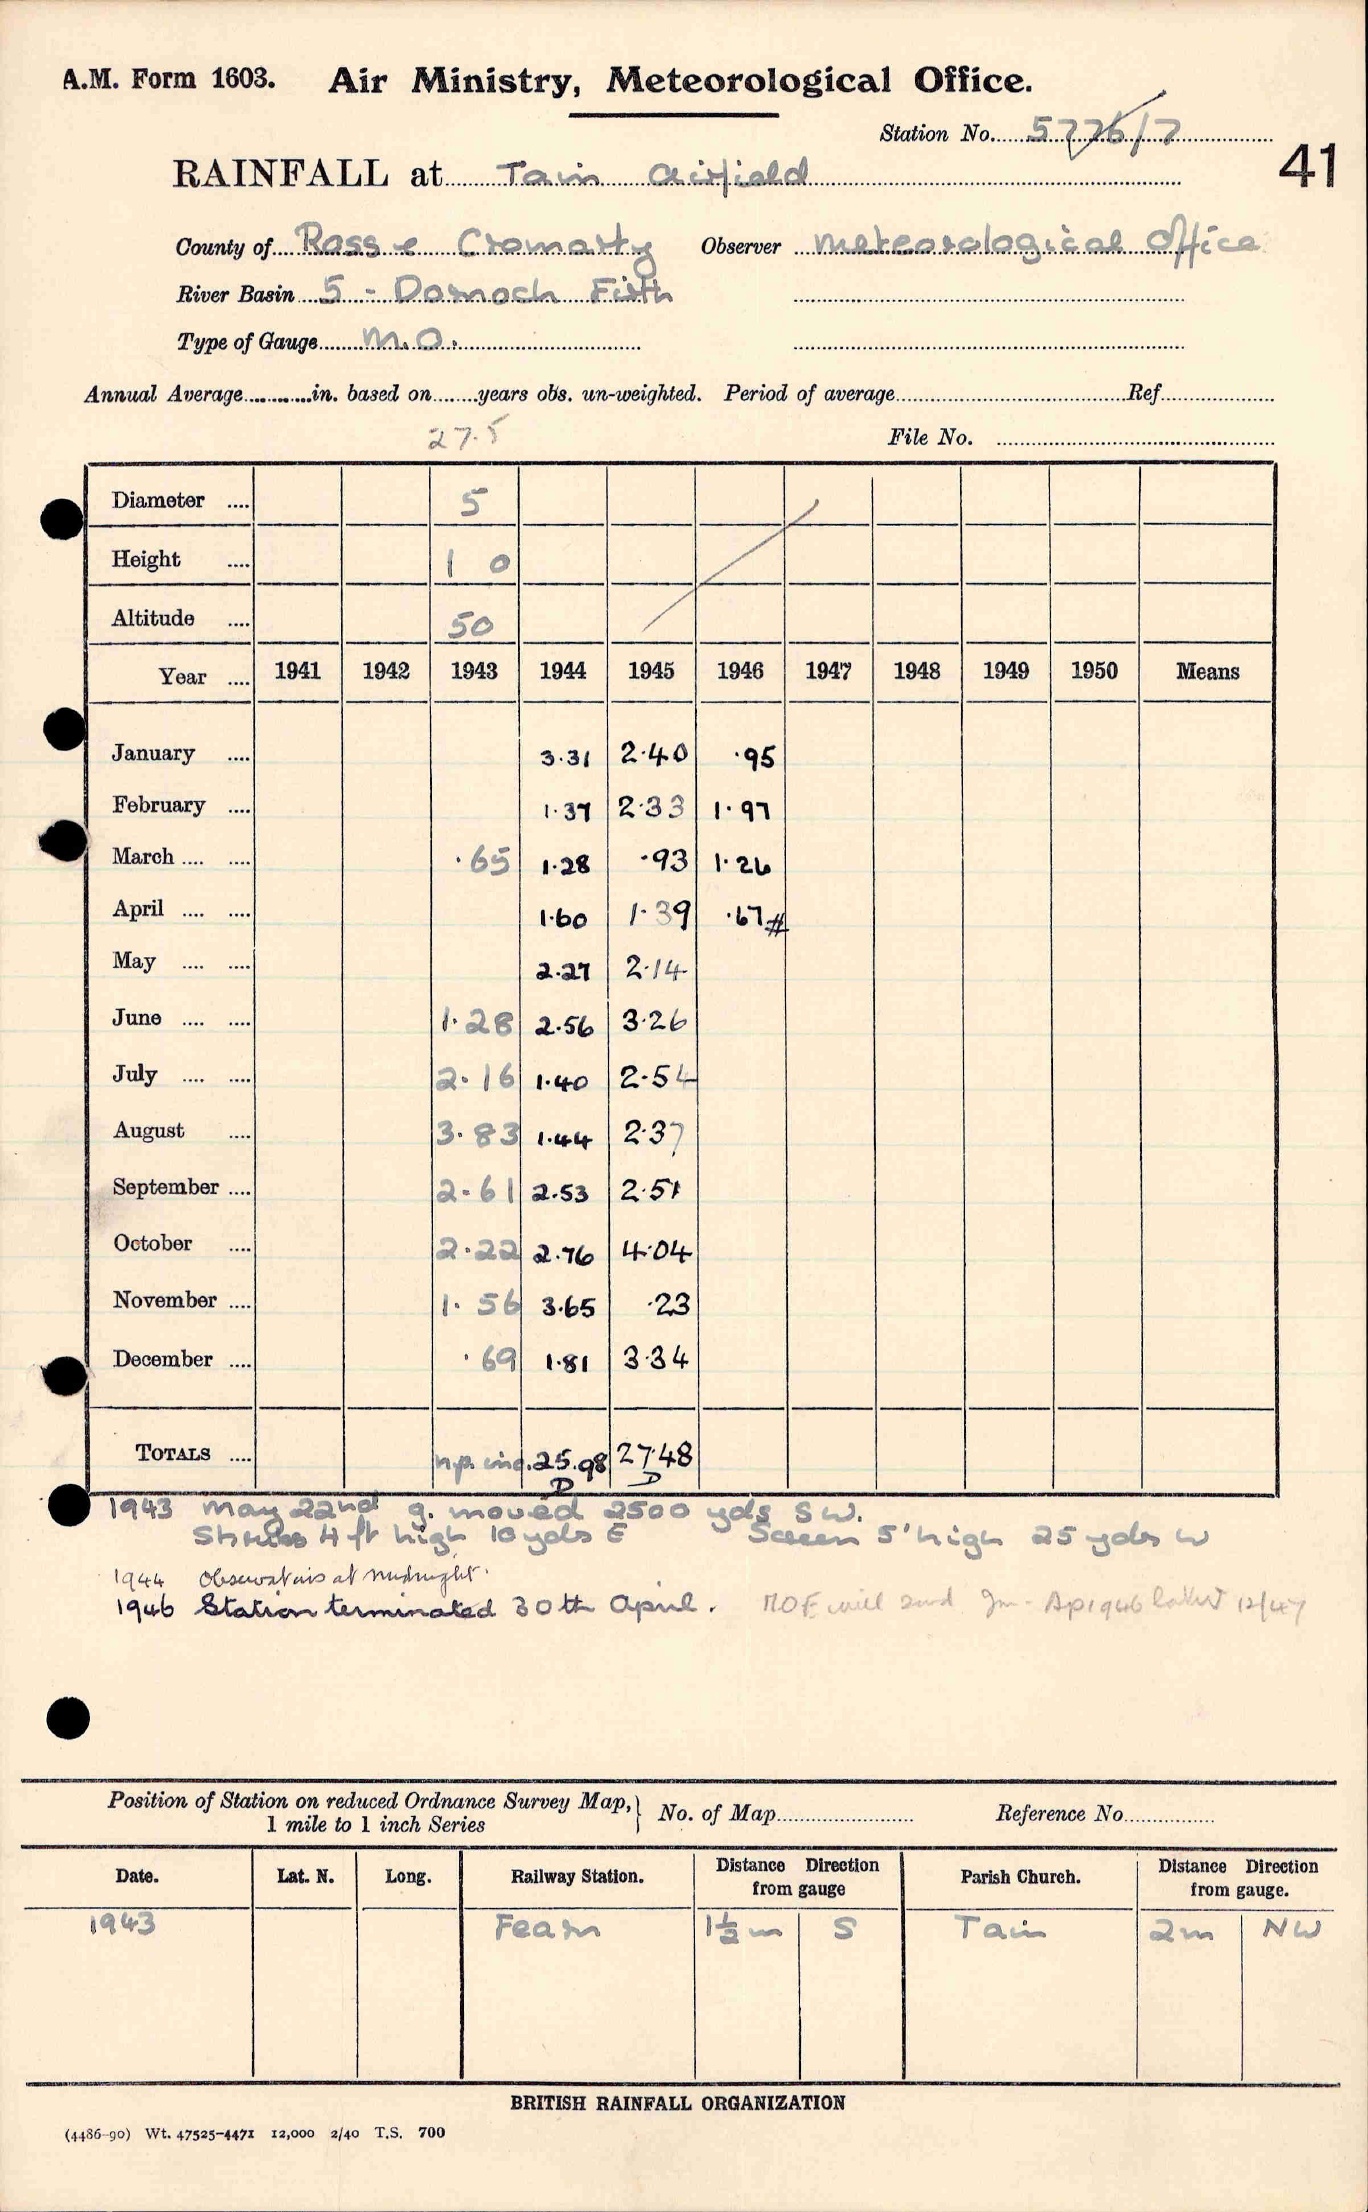 A.M. Form 1603. Air Ministry, Meteorological Office.
Station No. 5776/7
41
RAINFALL at Tain Airfield
County of Ross & Cromarty Observer Meteorological Office
River Basin 5 - Dornoch Firth
Type of Gauge M.O.
Annual Average in. based on years obs. un-weighted. Period of average Ref.
27.5
File No.
Diameter 5
Height 1 0
Altitude 50
Year 1941 1942 1943 1944 1945 1946 1947 1948 1949 1950 Means
January 3.31 2.40 .95
February 1.37 2.33 1.97
March .65 1.28 .93 1.26
April 1.60 1.39 .67#
May 2.27 2.14
June 1.28 2.56 3.26
July 2.16 1.40 2.54
August 3.83 1.44 2.37
September 2.61 2.53 2.51
October 2.22 2.76 4.04
November 1.56 3.65 .23
December .69 1.81 3.34
TOTALS n.p. inc. 25.98 27.48
D D
1943 May 22nd g. moved 2500 yds SW.
Shrubs 4 ft high 10 yds E Screen 5' high 25 yds W
1944 Observations at midnight.
1946 Station terminated 30th April. MOE will send Jan - Ap 1946 later 12/47
Position of Station on reduced Ordnance Survey Map, 1 mile to 1 inch Series } No. of Map Reference No.
Date. Lat. N. Long. Railway Station. Distance Direction from gauge Parish Church. Distance Direction from gauge.
1943 Fearn 1½ m S Tain 2m NW
BRITISH RAINFALL ORGANIZATION
(4486-90) Wt. 47525-4471 12,000 2/40 T.S. 700